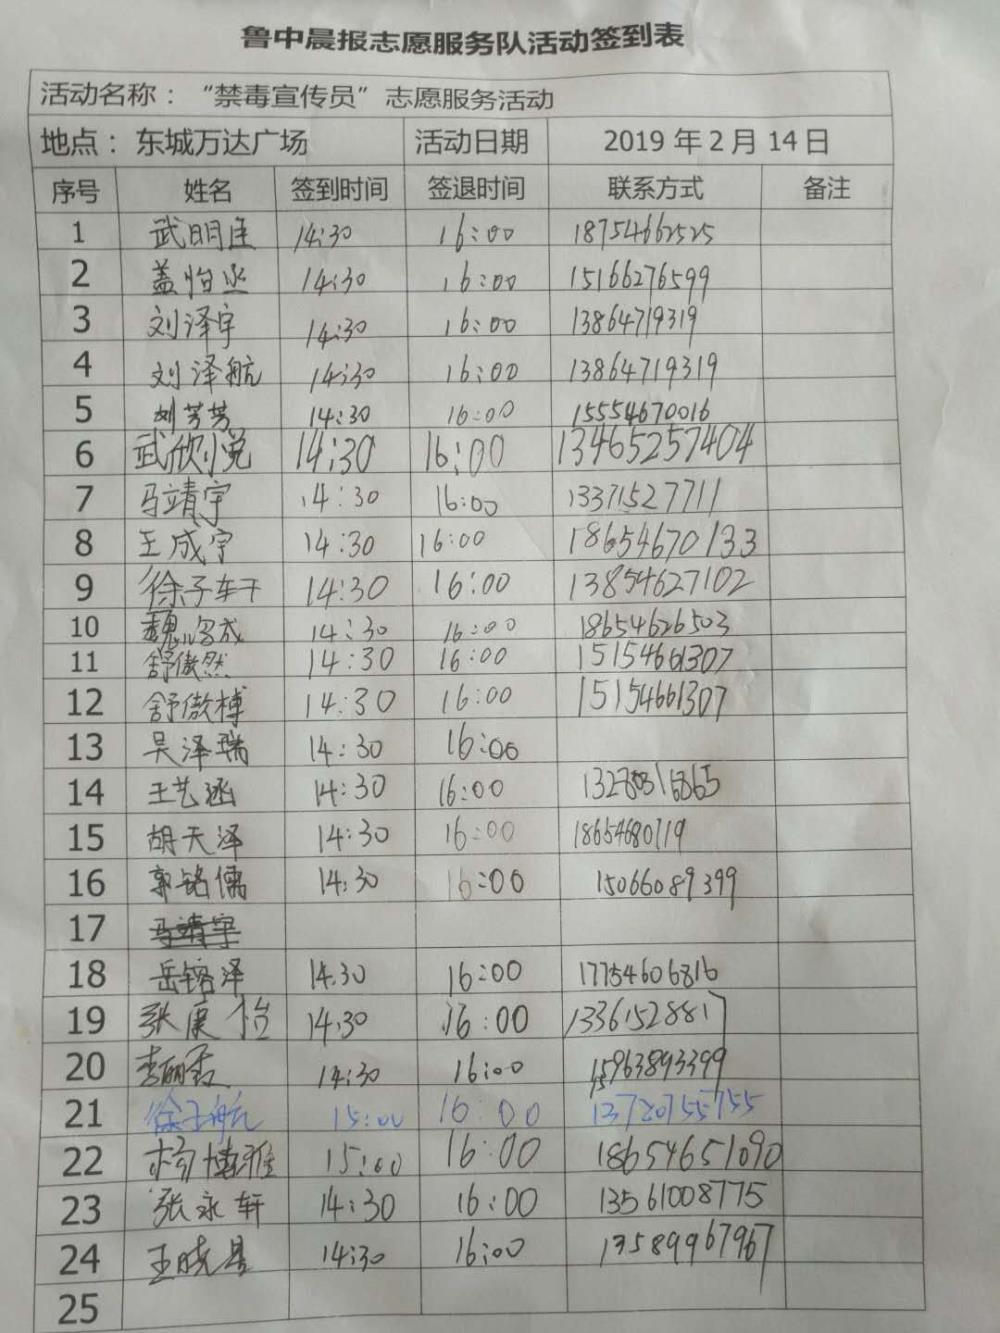 鲁中晨报志愿服务队活动签到表
活动名称：“禁毒宣传员”志愿服务活动
地点：东城万达广场 活动日期 2019年2月14日
序号 姓名 签到时间 签退时间 联系方式 备注
1 武明佳 14:30 16:00 18754662525
2 盖怡丞 14:30 16:00 15166276599
3 刘泽宇 14:30 16:00 13864719319
4 刘泽航 14:30 16:00 13864719319
5 刘芳芳 14:30 16:00 15554670016
6 武欣悦 14:30 16:00 13465257404
7 马靖宇 14:30 16:00 13371527711
8 王成宇 14:30 16:00 18654670133
9 徐子轩 14:30 16:00 13854627102
10 魏铭成 14:30 16:00 18654626503
11 舒傲然 14:30 16:00 15154661307
12 舒傲樽 14:30 16:00 15154661307
13 吴泽瑞 14:30 16:00
14 王艺涵 14:30 16:00
15 胡天泽 14:30 16:00 18654680719
16 郭铭儒 14:30 16:00 15066089399
17 马靖宇
18 岳镕泽 14:30 16:00 17754606816
19 张康怡 14:30 16:00 13361528817
20 李丽霞 14:30 16:00 15963893399
21 徐子航 15:00 16:00 13720755755
22 杨博雅 15:00 16:00 18654651090
23 张永轩 14:30 16:00 13561008775
24 王晓晨 14:30 16:00 13589967967
25